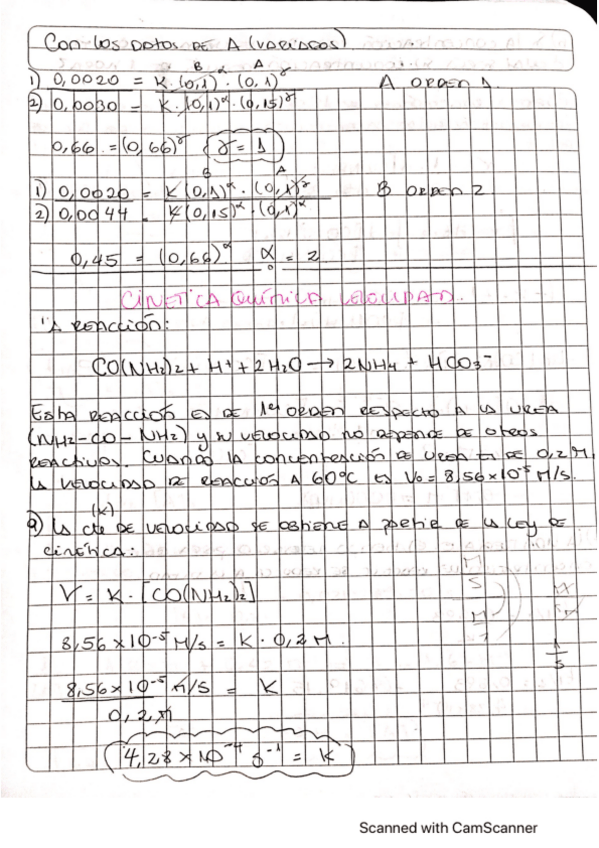 CON LOS DATOS DE A (VARIADOS)
B A
1) 0,0020 = K.(0,1)^α . (0,1)^γ A ORDEN 1.
2) 0,0030 = K.(0,1)^α.(0,15)^γ
0,66 = (0,66)^γ γ = 1
B A
1) 0,0020 = K(0,1)^α . (0,1)^γ B ORDEN 2
2) 0,0044 = K(0,15)^α.(0,1)^α
0,45 = (0,66)^α α = 2
CINETICA QUÍMICA VELOCIDAD.
REACCIÓN:
CO(NH2)2 + H+ + 2H2O → 2NH4 + HCO3-
ESTA REACCIÓN ES DE 1er ORDEN RESPECTO A LA UREA
(NH2-CO-NH2) y su VELOCIDAD NO DEPENDE DE OTROS
REACTIVOS. CUANDO LA CONCENTRACIÓN DE UREA ES DE 0,2 M,
LA VELOCIDAD DE REACCIÓN A 60°C ES V0 = 8,56x10-5 M/s.
(K)
a) LA cte DE VELOCIDAD SE OBTIENE A PARTIR DE LA LEY DE
CINÉTICA:
V = K . [CO(NH2)2]
8,56 x 10-5 M/s = K . 0,2 M.
8,56 x 10-5 M/s = K
0,2 M
4,28 x 10-4 s-1 = K
Scanned with CamScanner